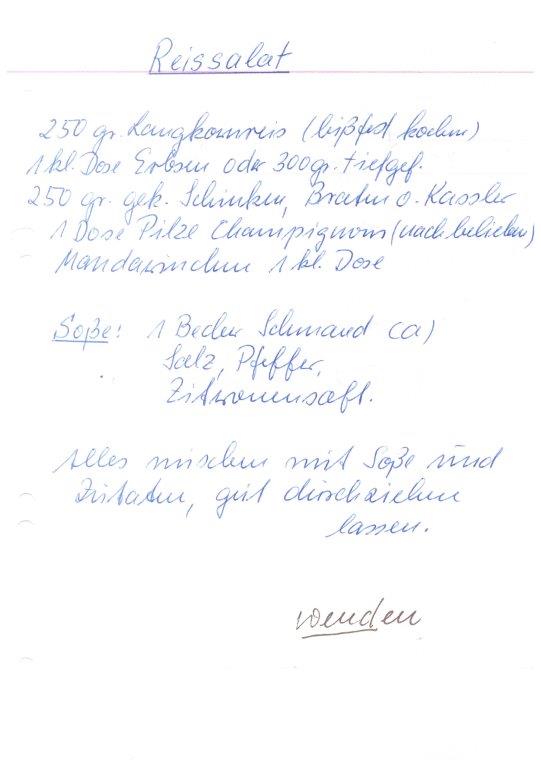 Reissalat
250 gr. Langkornreis (bißfest kochen)
1 kl. Dose Erbsen oder 300 gr. tiefgef.
250 gr. gek. Schinken, Braten o. Kassler
1 Dose Pilze Champignons (nach belieben)
Mandarinchen 1 kl. Dose
Soße: 1 Becher Schmand ca)
Salz, Pfeffer,
Zitronensaft.
Alles mischen mit Soße und
Zutaten, gut durchziehen
lassen.
wenden